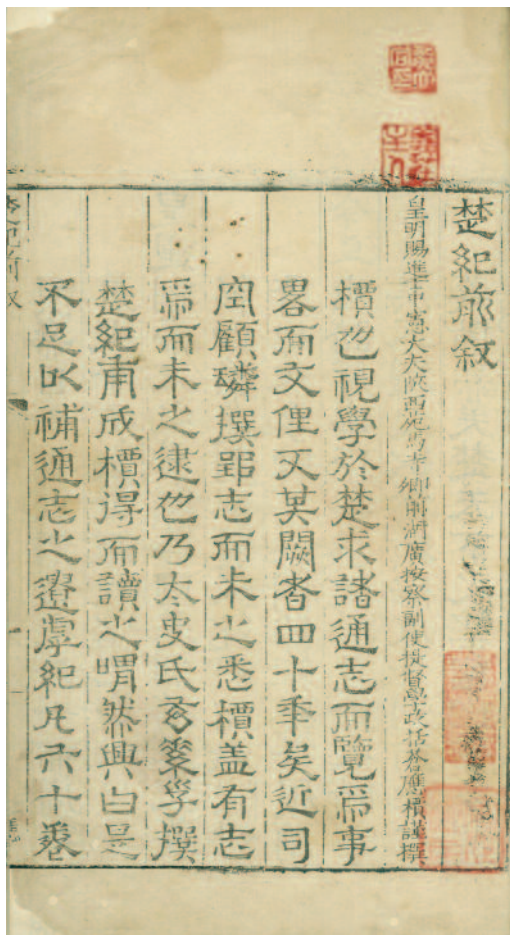 楚紀前叙
皇明賜進士中憲大夫陝西苑馬寺卿前湖廣按察副使提督學政括蒼應檟謹撰
檟也視學於楚求諸通志而覽焉事
畧而文俚又其闕者四十年矣近司
空顧璘撰郢志而未之悉檟盖有志
焉而未之逮也乃太史氏玄素子撰
楚紀甫成檟得而讀之喟然興曰是
不足以補通志之遺虖紀凡六十卷